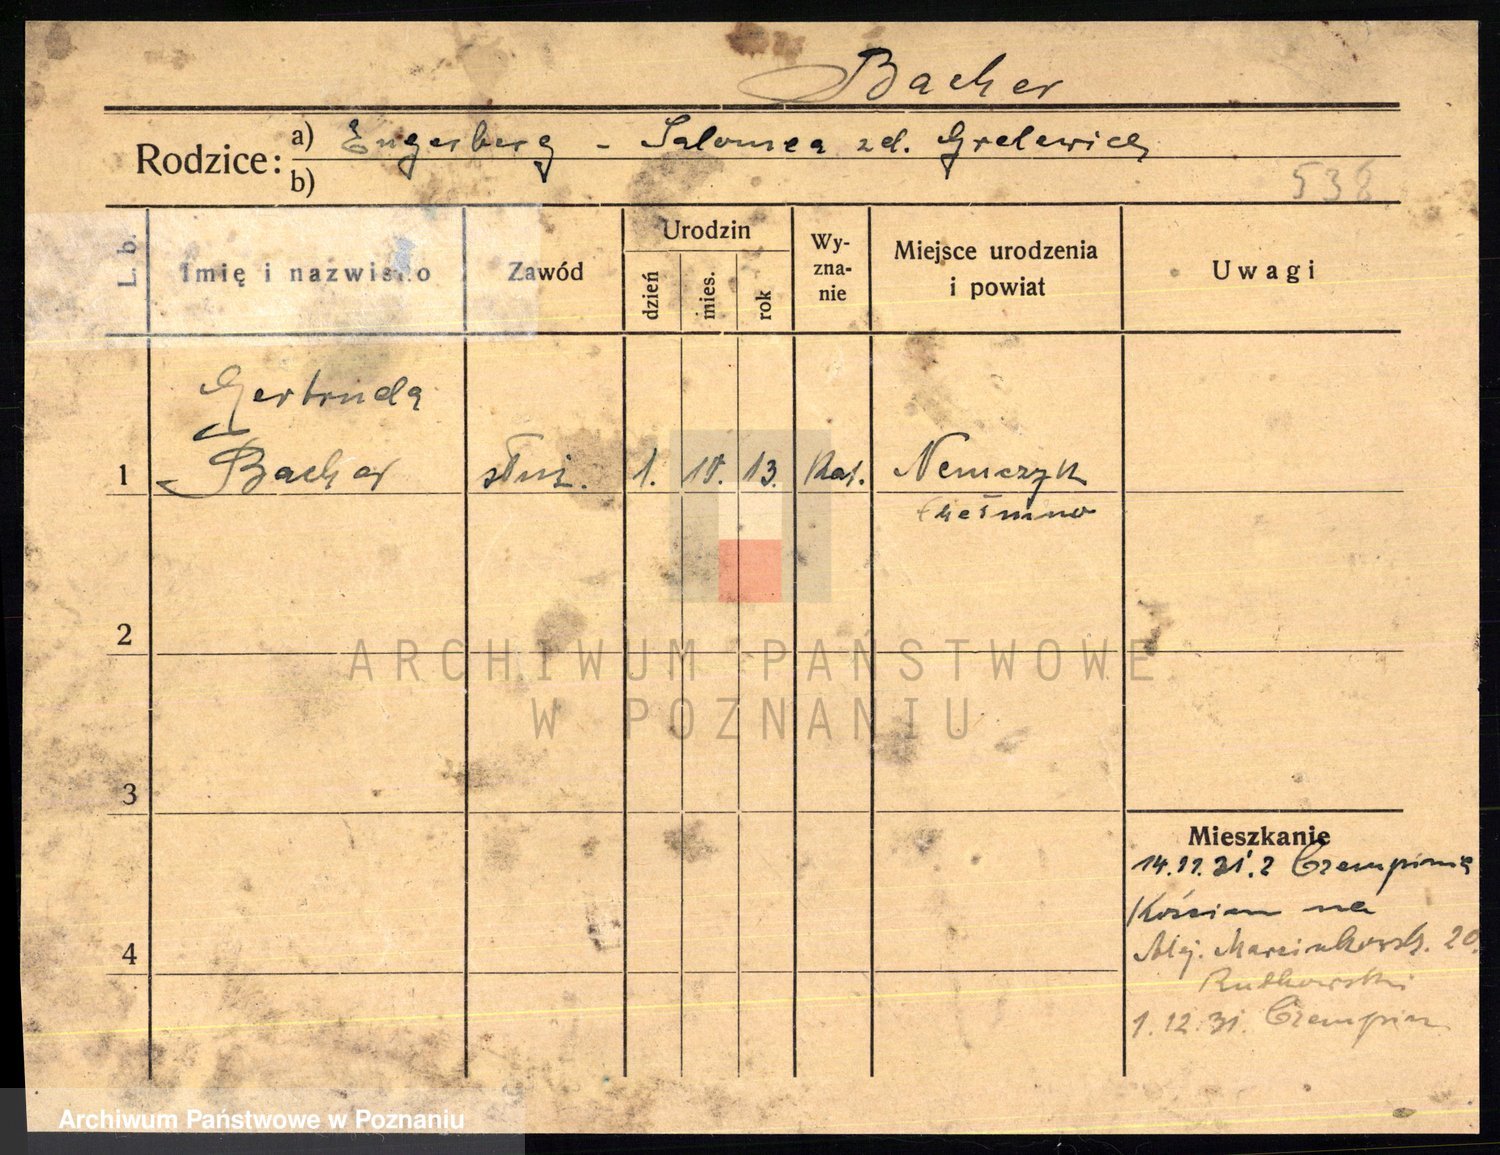 Bacher
Rodzice: a) Engerberg - Salomea zd. Grelewicz
b)
538
L. b.
Imię i nazwisko
Zawód
Urodzin
dzień
mies.
rok
Wy-
zna-
nie
Miejsce urodzenia
i powiat
Uwagi
Gertruda
1 Bacher służ. 1. 10. 13. Kat. Niemczyn
2
3
4
Mieszkanie
14.11.31. z Czempinia
Kościan na
Alej. Marcinkowsk. 20.
Rutkowski
1.12.31. Czempin
ARCHIWUM PAŃSTWOWE
W POZNANIU
Archiwum Państwowe w Poznaniu